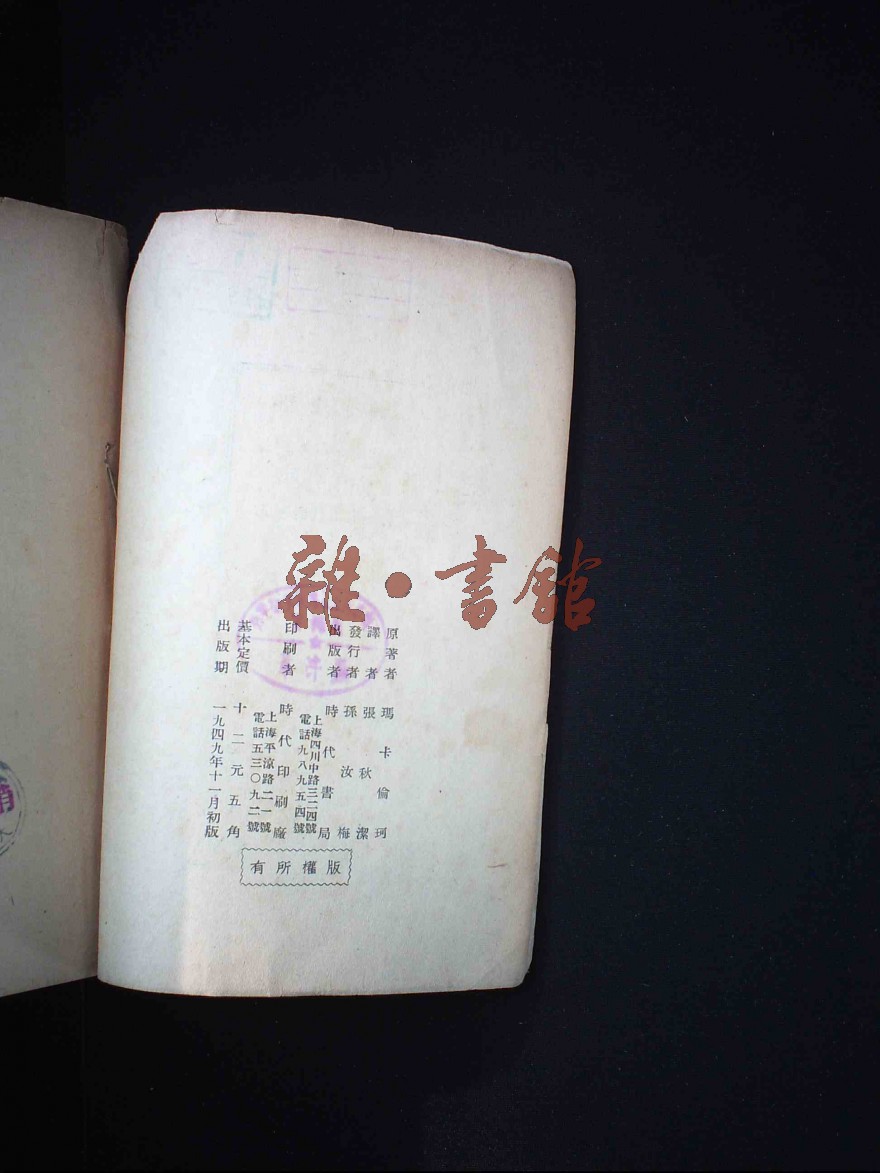 雜·書館
原著者 瑪卡倫珂
譯者 張秋潔
發行者 孫汝梅
出版者 時代書局
上海四川中路三二四號
電話九八九五四號
印刷者 時代印刷廠
上海平涼路二一號
電話五三〇九二號
基本定價 十二元五角
出版期 一九四九年十一月初版
版權所有